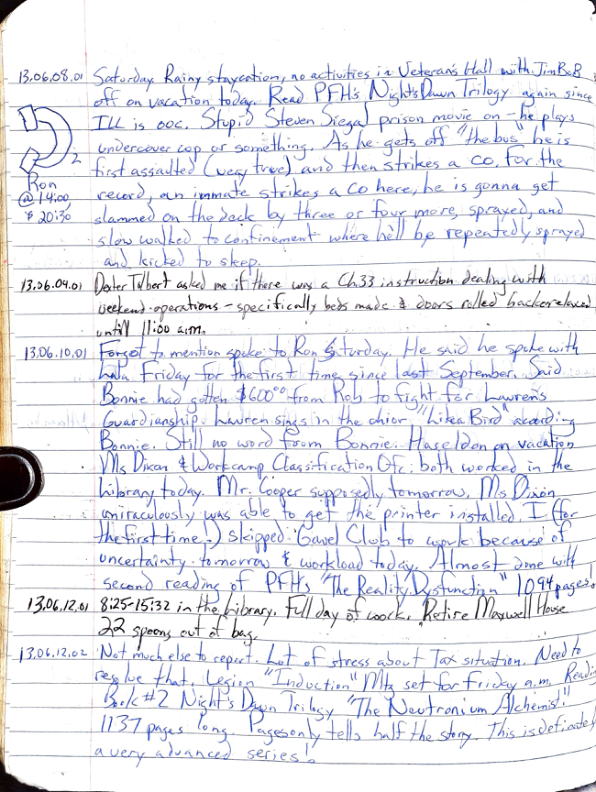 13.06.08.01 Saturday. Rainy staycation, no activities in Veteran's Hall with Jim B&B
off on vacation today. Read PFH's Night's Dawn Trilogy again since
ILL is ooc. Stupid Steven Siegal prison movie on - he plays
undercover cop or something. As he gets off "the bus" he is
first assaulted (very true) and then strikes a CO. For the
2
Ron
@ 14:00
& 20:30
record, an inmate strikes a CO here, he is gonna get
slammed on the deck by three or four more, sprayed, and
slow walked to confinement where he'll be repeatedly sprayed
and kicked to sleep.
13.06.09.01 Dexter Talbert asked me if there was a Ch. 33 instruction dealing with
weekend operations - specifically beds made & doors rolled back relaxed
until 11:00 a.m.
13.06.10.01 Forgot to mention spoke to Ron Saturday. He said he spoke with
Lala Friday for the first time since last September. Said
Bonnie had gotten $600⁰⁰ from Rob to fight for Lauren's
Guardianship. Lauren sings in the chior "Like a Bird" according
Bonnie. Still no word from Bonnie. Haseldon on vacation
Ms Dixon & Workcamp Classification Ofc. both worked in the
Library today. Mr. Cooper supposedly tomorrow. Ms Dixon
miraculously was able to get the printer installed. I (for
the first time!) skipped Gavel Club to work because of
uncertainty tomorrow & workload today. Almost done with
second reading of PFH's "The Reality Dysfunction" 1094 pages!
13.06.12.01 8:25-15:32 in the Library. Full day of work. Retire Maxwell House
22 spoons out of bag.
13.06.12.02 Not much else to report. Lot of stress about Tax situation. Need to
resolve that. Legion "Induction" Mtg set for Friday a.m. Reading
Book #2 Night's Dawn Trilogy "The Neutronium Alchemist."
1137 pages long. Pages only tells half the story. This is definately
a very advanced series!